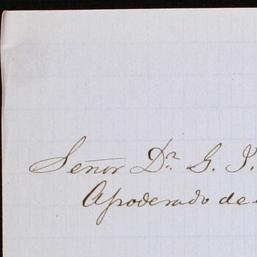 Señor Dn. G. Y.
Apoderado de